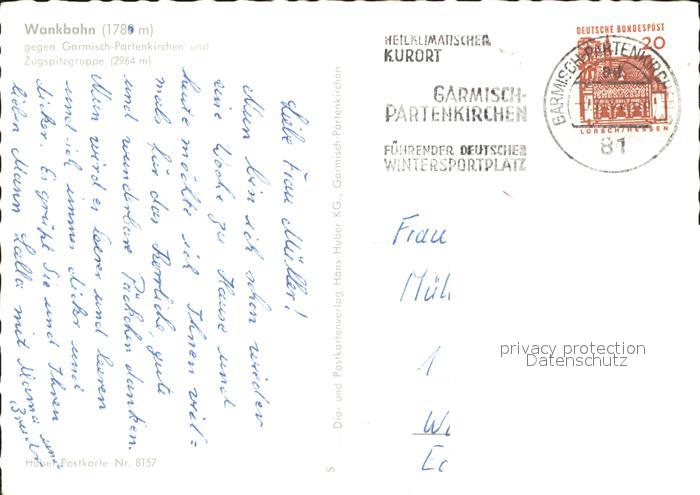 Wankbahn (1780 m)
gegen Garmisch-Partenkirchen und
Zugspitzgruppe (2964 m)
Liebe Frau Müller!
Nun bin ich schon wieder
eine Woche zu Hause und
heute möchte ich Ihnen viel=
mals für das herrliche, gute
und wunderbare Päckchen danken.
Nun wird es leerer und leerer
und ich immer dicker und
dicker. Es grüßt Sie und Ihren
lieben Mann Lalla mit Mama und
Bruder
Huber-Postkarte Nr. 8157
Dia- und Postkartenverlag Hans Huber KG., Garmisch-Partenkirchen
S
HEILKLIMATISCHER
KURORT
GARMISCH-
PARTENKIRCHEN
FÜHRENDER DEUTSCHER
WINTERSPORTPLATZ
DEUTSCHE BUNDESPOST
20
LORSCH/HESSEN
GARMISCH-PARTENKIRCH
81
Frau
Mül
1
privacy protection
Datenschutz